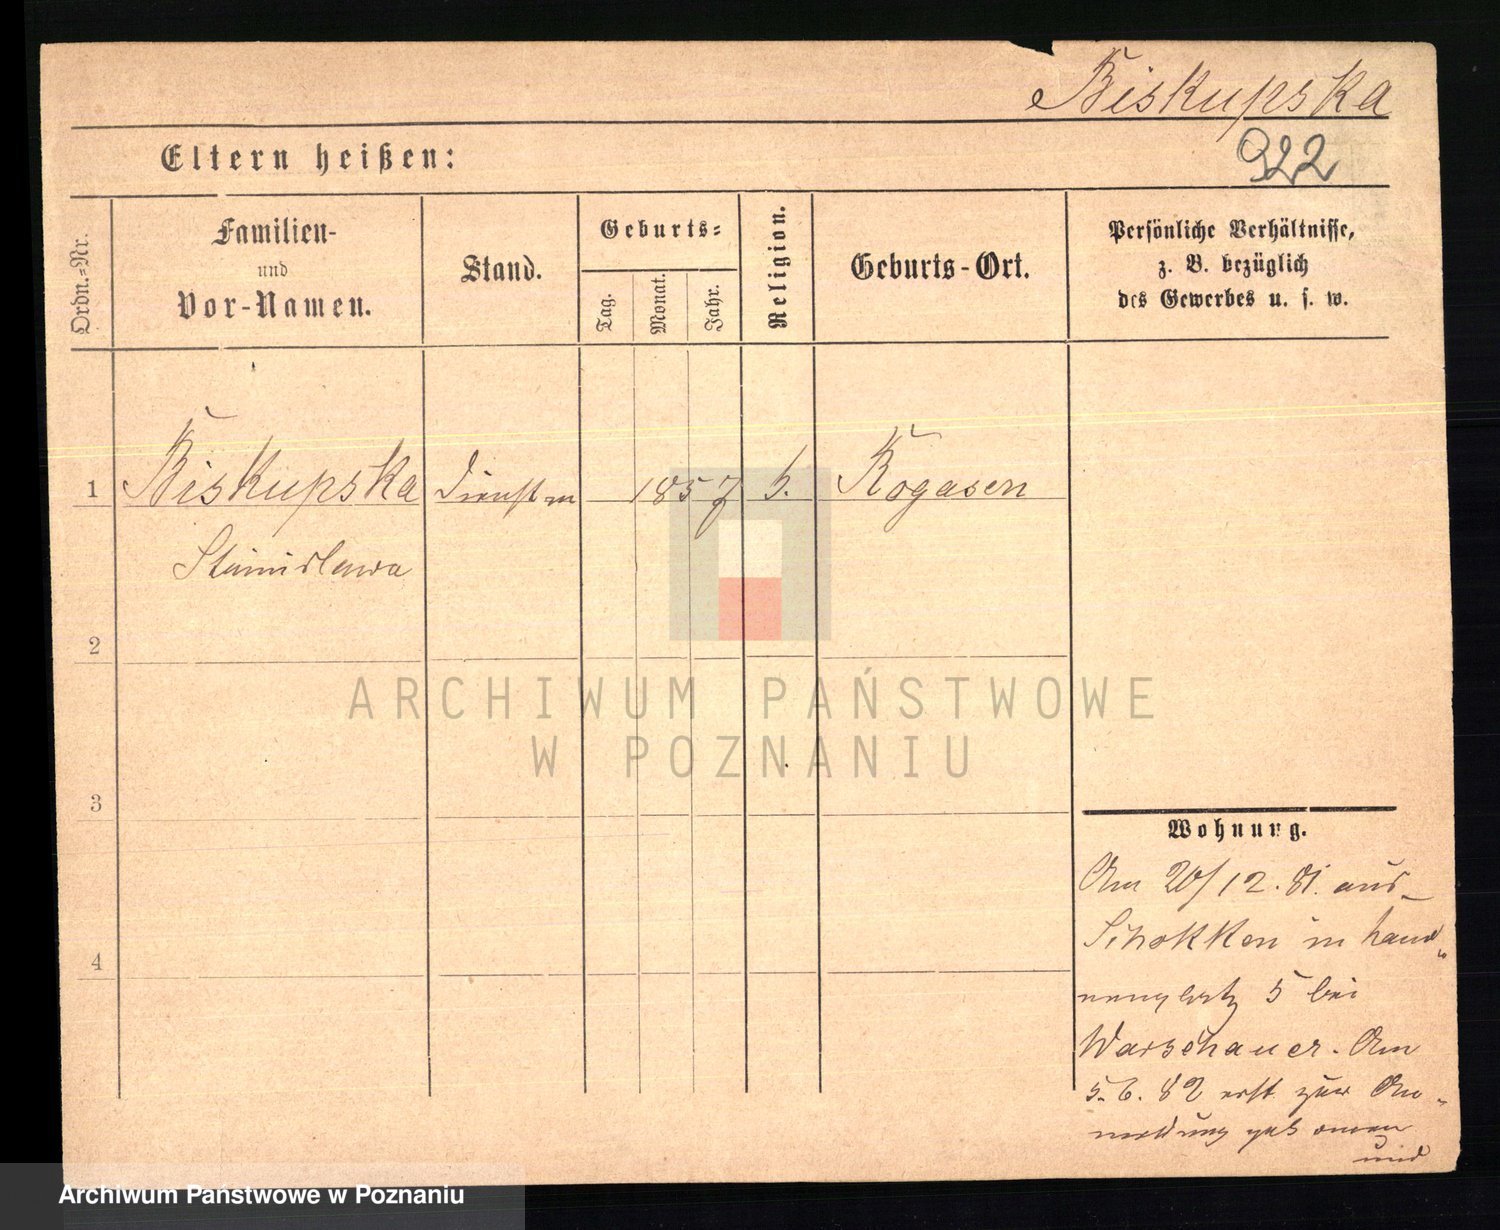 Biskupska
922
Eltern heißen:
Ordn.=Nr.
Familien-
und
Vor-Namen.
Stand.
Geburts=
Tag.
Monat.
Jahr.
Religion.
Geburts-Ort.
Persönliche Verhältnisse,
z. B. bezüglich
des Gewerbes u. s. w.
1 Biskupska Dienstm 1857 Rogasen
Stanislawa
2
ARCHIWUM PAŃSTWOWE
W POZNANIU
3
Wohnung.
Am 20/12.81. aus
Schokken in
4
5 bei
Warschauer. Am
5.6.82 erst zur An-
meldung
und
Archiwum Państwowe w Poznaniu